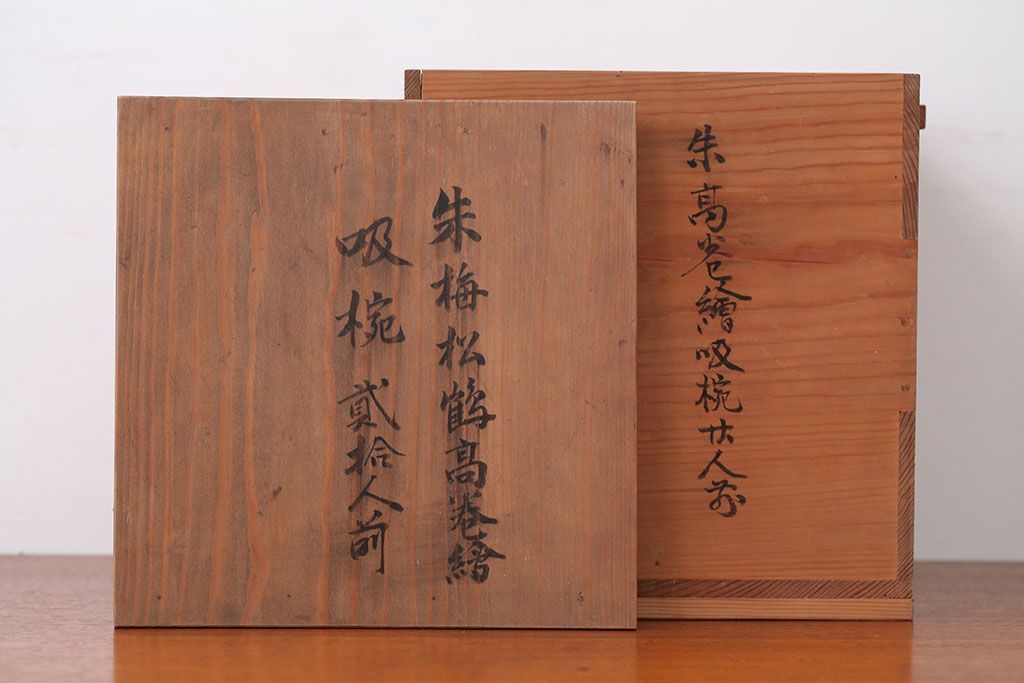 朱梅松鶴高巻繪
吸椀貳拾人前
朱高巻繪吸椀廿人前